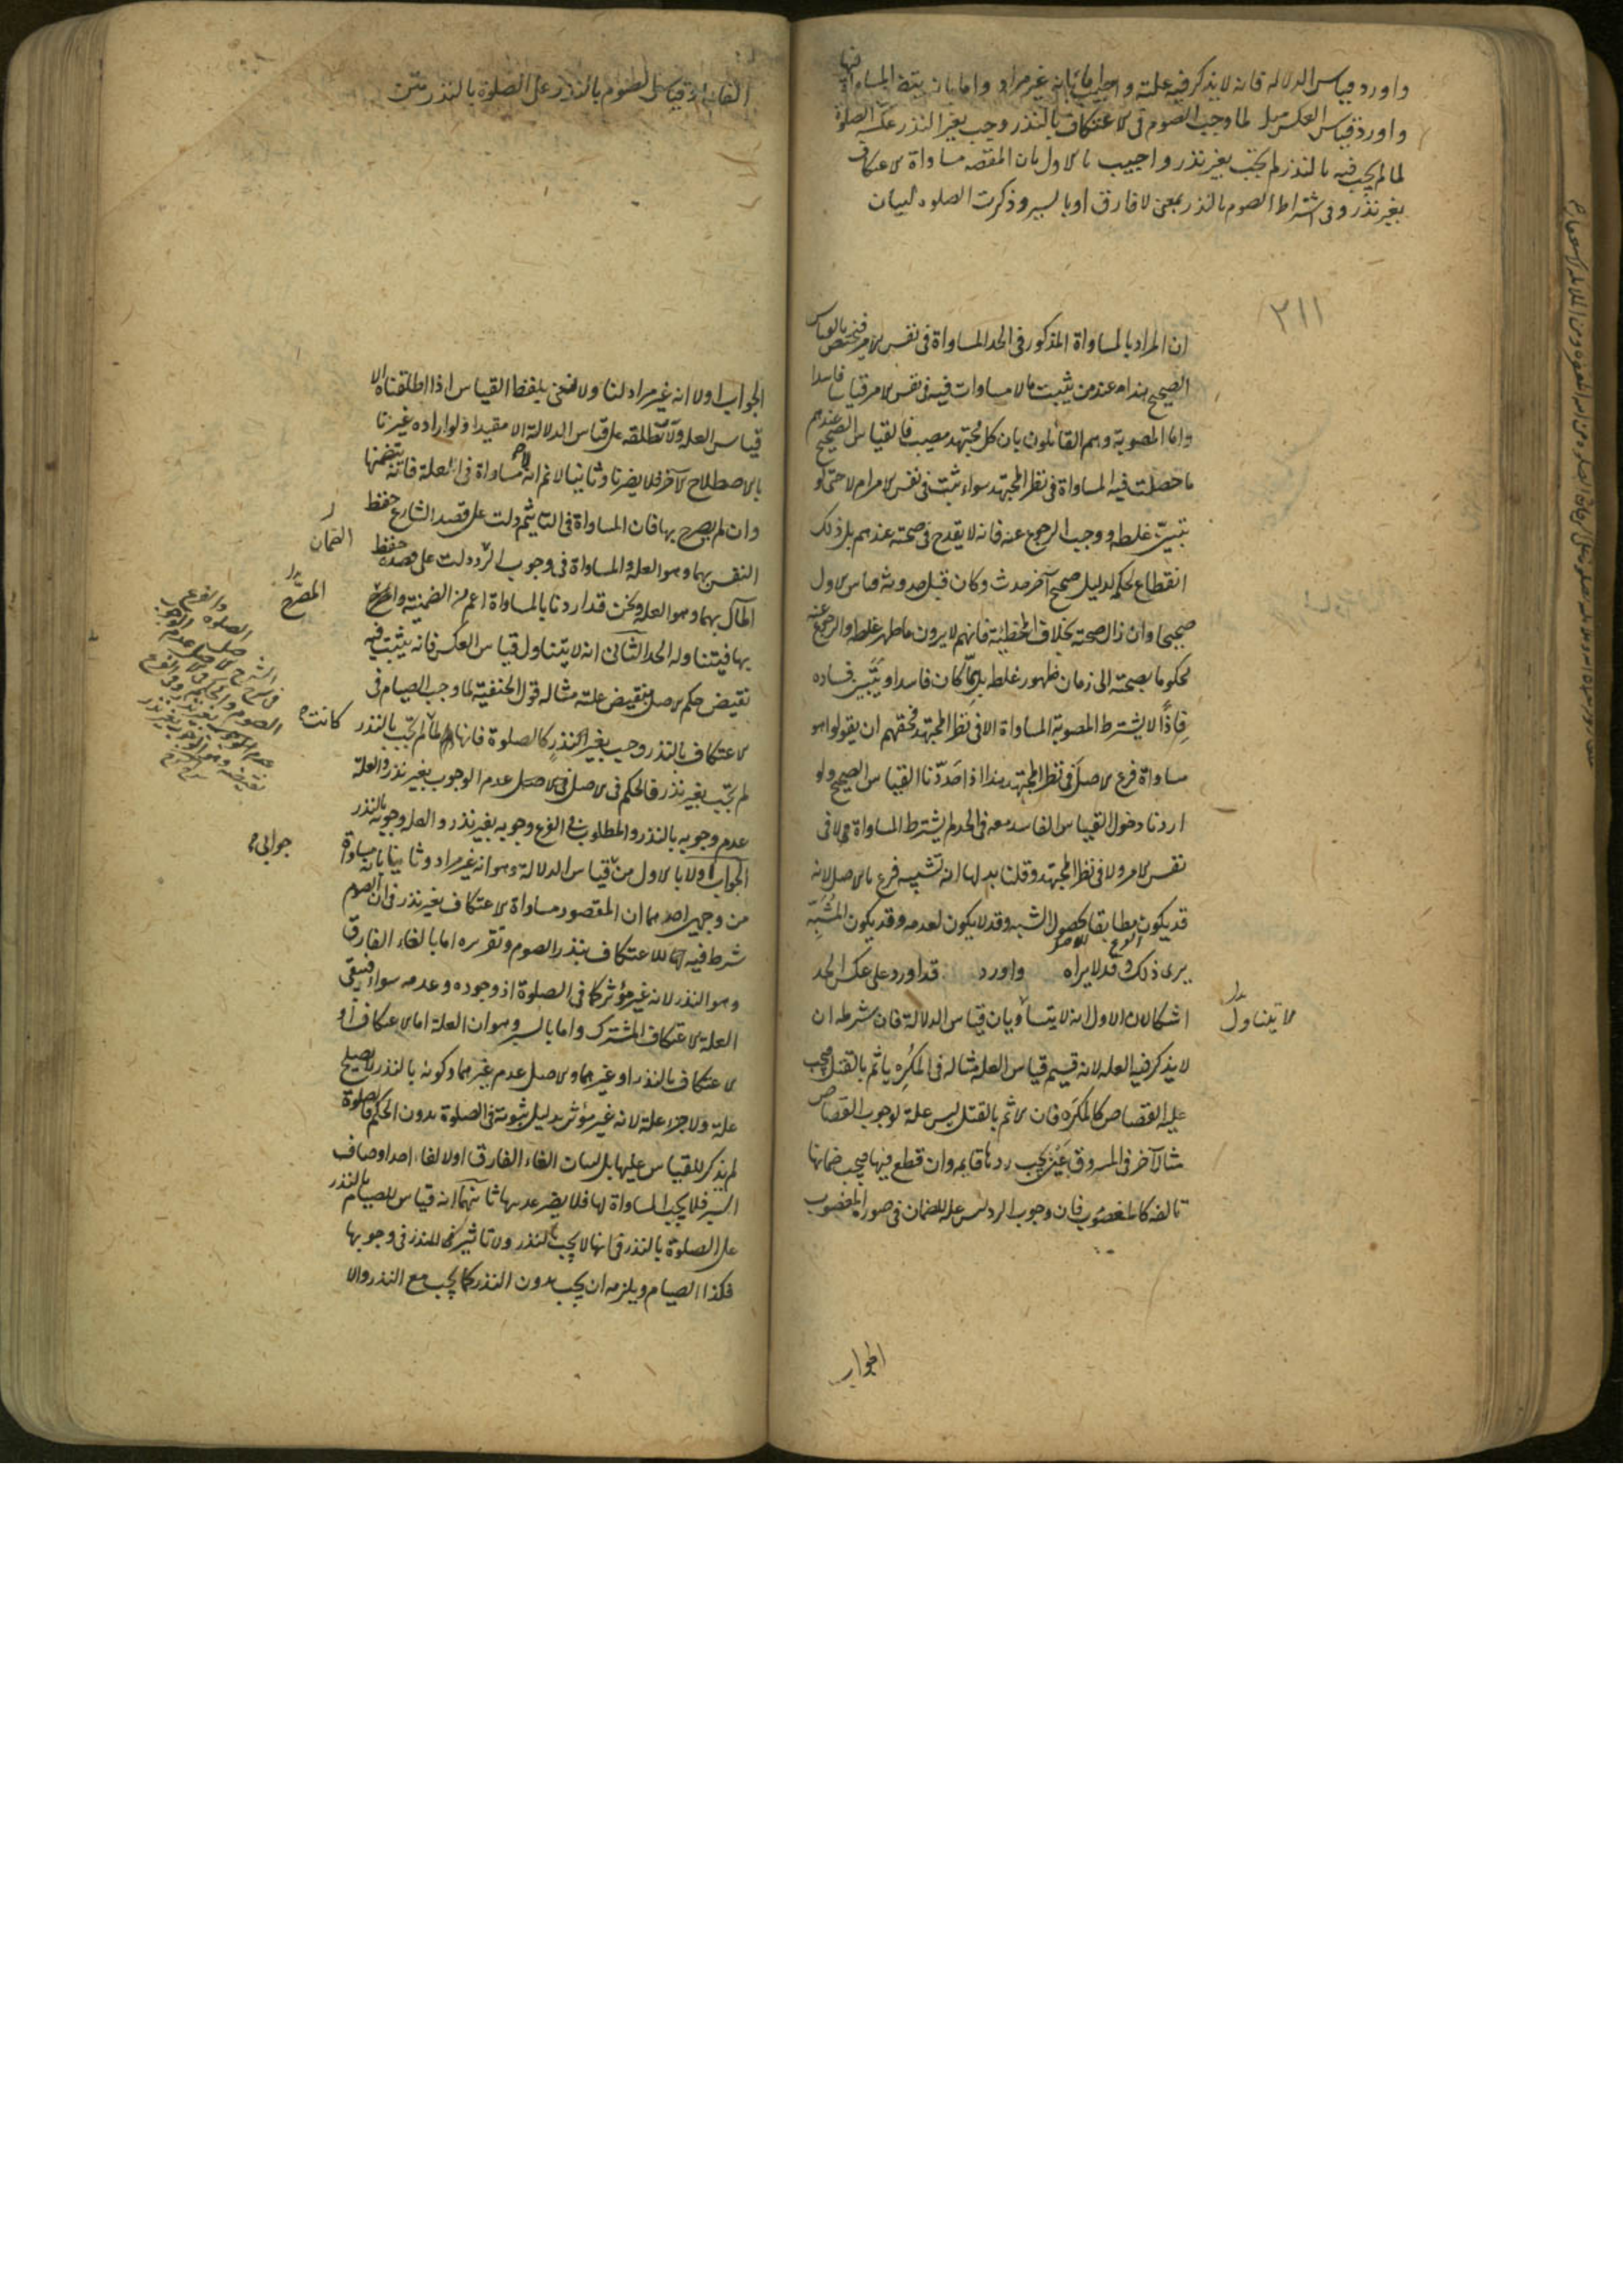 واورد قياس الدلالة فانه لا يذكر فيه علة واجيب اما بانه غير مراد واما بانه يتضمن المساواة فيها
واورد قياس العكس مثل لما وجب الصوم فى الاعتكاف بالنذر وجب بغير النذر عكسه الصلوة
لما لم يجب فيه بالنذر لم يجب بغير نذر واجيب بالاول بان المقصد مساواة الاعتكاف
بغير نذر فى اشتراط الصوم بالنذر بمعنى لا فارق او بالسبر وذكرت الصلوه لبيان
٣١١
ان المراد بالمساواة المذكور فى الحد المساواة فى نفس الامر فيختص بالقياس
الصحيح هذا عند من يثبت ما لا مساوات فيه فى نفس الامر قياسا فاسدا
واما المصوبة وهم القائلون بان كل مجتهد مصيب فالقياس الصحيح عندهم
ما حصلت فيه المساواة فى نظر المجتهد سواء ثبت فى نفس الامر ام لا حتى لو
تبين غلطه ووجب الرجوع عنه فانه لا يقدح فى صحته عندهم بل ذلك
انقطاع لحكمه لدليل صحيح آخر حدث وكان قبل حدوثه القياس الاول
صحيحا وان زال صحته بخلاف المخطئة فانهم لا يرون ما ظهر غلطه والرجوع عنه
محكوما بصحته الى زمان ظهور غلطه بل مما كان فاسدا وتبين فساده
فاذًا لا يشترط المصوبة المساواة الا فى نظر المجتهد فحقهم ان يقولوا هو
مساواة فرع لاصل فى نظر المجتهد هذا اذا حددنا القياس الصحيح ولو
اردنا دخول القياس الفاسد معه فى الحد لم يشترط المساواة لا فى
نفس الامر ولا فى نظر المجتهد وقلنا بدلها انه تشبيه فرع بالاصل لانه
قد يكون مطابقا لحصول الشبه وقد لا يكون لعدمه وقد يكون المشبه
يرى ذلك وقد لا يراه واورد قد اورد على عكس الحد
اشكالان الاول انه لا يتساوان قياس الدلالة فان شرطه ان
لا يتناول
لا يذكر فيه العلة لانه قسيم قياس العلة مثاله فى المكره ياثم بالقتل فيجب
عليه القصاص كالمكره فان الاثم بالقتل ليس علة لوجوب القصاص
مثال آخر فى المسروق عين يجب ردها قايمه وان قطع فيها فيجب ضمانها
تالفه كالمغصوب فان وجوب الرد ليس علة للضمان فى صورة المغصوب
الجواب
الغاء او قياس الصوم بالنذر على الصلوة بالنذر متن
الجواب اولا انه غير مراد لنا ولا نعنى بلفظ القياس اذا اطلقناه الا
قياس العلة ولا نطلقه على قياس الدلالة الا مقيدا ولو اراده غيرنا
بالاصطلاح الآخر فلا يضرنا وثانيا لا نم انه لا مساواة فى العلة فانه يتضمنها
وان لم يصرح بها فان المساواة فى التاثيم دلت على قصد الشارع حفظ
النفس بهما وهو العلة والمساواة فى وجوب الرد دلت على قصده حفظ
الضمان
المال بهما وهو العلة ونحن قد اردنا بالمساواة اعم من الضمنية والمصرح
المصرح
بها فيتناوله الحد الثانى انه لا يتناول قياس العكس فانه يثبت فيه
نقيض حكم الاصل بنقيض علته مثاله قول الحنفية لما وجب الصيام فى
الاعتكاف بالنذر وجب بغير النذر كالصلوة فانها لما لم تجب بالنذر
كانت
لم تجب بغير نذر فالحكم فى الاصل عدم الوجوب بغير نذر والعلة
عدم وجوبه بالنذر والمطلوب فى الفرع وجوبه بغير نذر والعلة وجوبه بالنذر
الجواب اولا بالاول من قياس الدلالة وهو انه غير مراد وثانيا بانه مساواة
جوابى
من وجهين احدهما ان المقصود مساواة الاعتكاف بغير نذر فى ان الصوم
شرط فيه للاعتكاف بنذر الصوم وتقريره اما بالغاء الفارق
وهو النذر لانه غير مؤثر كما فى الصلوة اذ وجوده وعدمه سواء فيبقى
العلة الاعتكاف المشترك واما بالسبر وهو ان العلة اما الاعتكاف او
الاعتكاف بالنذر او غيرهما والاصل عدم غيرهما وكونه بالنذر لا يصلح
علة ولا جزء علة لانه غير مؤثر بدليل ثبوته فى الصلوة بدون الحكم فالصلوة
لم يذكر للقياس عليها بل لبيان الغاء الفارق او لالغاء احد اوصاف
السبر فلا يجب المساواة لها فلا يضر عدمها ثانيهما انه قياس للصيام بالنذر
على الصلوة بالنذر فانها لا يجب بالنذر ولا تاثير للنذر فى وجوبها
فكذا الصيام ويلزمه ان يجب بدون النذر كما يجب مع النذر والا